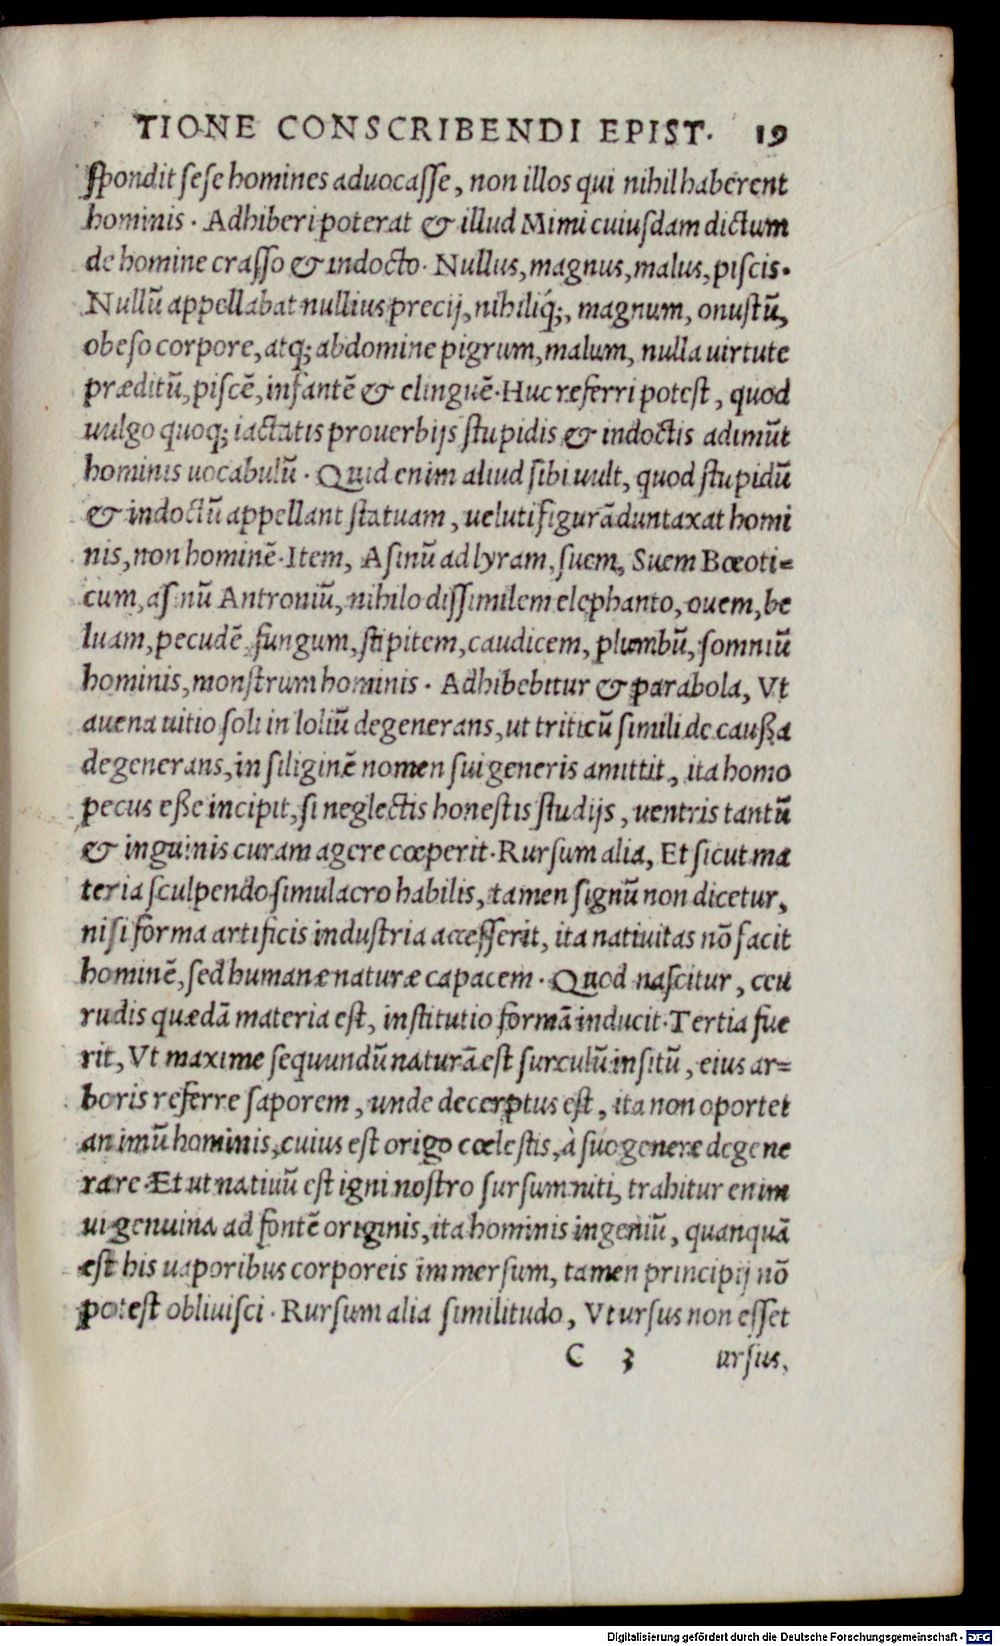 TIONE CONSCRIBENDI EPIST. 19
ſpondit ſeſe homines aduocaſſe, non illos qui nihil haberent
hominis. Adhiberi poterat & illud Mimi cuiuſdam dictum
de homine craſſo & indocto. Nullus, magnus, malus, piſcis.
Nullũ appellabat nullius precij, nihiliq́;, magnum, onuſtũ,
obeſo corpore, atq; abdomine pigrum, malum, nulla uirtute
præditũ, piſcẽ, infantẽ & elinguẽ. Huc referri poteſt, quod
uulgo quoq; iactatis prouerbijs ſtupidis & indoctis adimũt
hominis uocabulũ. Quid enim aliud ſibi uult, quod ſtupidũ
& indoctũ appellant ſtatuam, ueluti figurã duntaxat homi
nis, non hominẽ. Item, Aſinũ ad lyram, ſuem, Suem Bœoti=
cum, aſinũ Antroniũ, nihilo diſſimilem elephanto, ouem, be
luam, pecudẽ, fungum, ſtipitem, caudicem, plumbũ, ſomniũ
hominis, monſtrum hominis. Adhibebitur & parabola, Vt
auena uitio ſoli in loliũ degenerans, ut triticũ ſimili de cauſſa
degenerans, in ſiliginẽ nomen ſui generis amittit, ita homo
pecus eſſe incipit, ſi neglectis honeſtis ſtudijs, uentris tantũ
& inguinis curam agere cœperit. Rurſum alia, Et ſicut ma
teria ſculpendo ſimulacro habilis, tamen ſignũ non dicetur,
niſi forma artificis induſtria acceſſerit, ita natiuitas nõ facit
hominẽ, ſed humanæ naturæ capacem. Quod naſcitur, ceu
rudis quædã materia eſt, inſtitutio formã inducit. Tertia fue
rit, Vt maxime ſequundũ naturã eſt ſurculũ inſitũ, eius ar=
boris referre ſaporem, unde decerptus eſt, ita non oportet
animũ hominis, cuius eſt origo cœleſtis, à ſuo genere degene
rare. Et ut natiuũ eſt igni noſtro ſurſum niti, trahitur enim
ui genuina ad fontẽ originis, ita hominis ingeniũ, quanquã
eſt his uaporibus corporeis immerſum, tamen principij nõ
poteſt obliuiſci. Rurſum alia ſimilitudo, Vt urſus non eſſet
C 3 urſus,
Digitalisierung gefördert durch die Deutsche Forschungsgemeinschaft - DFG